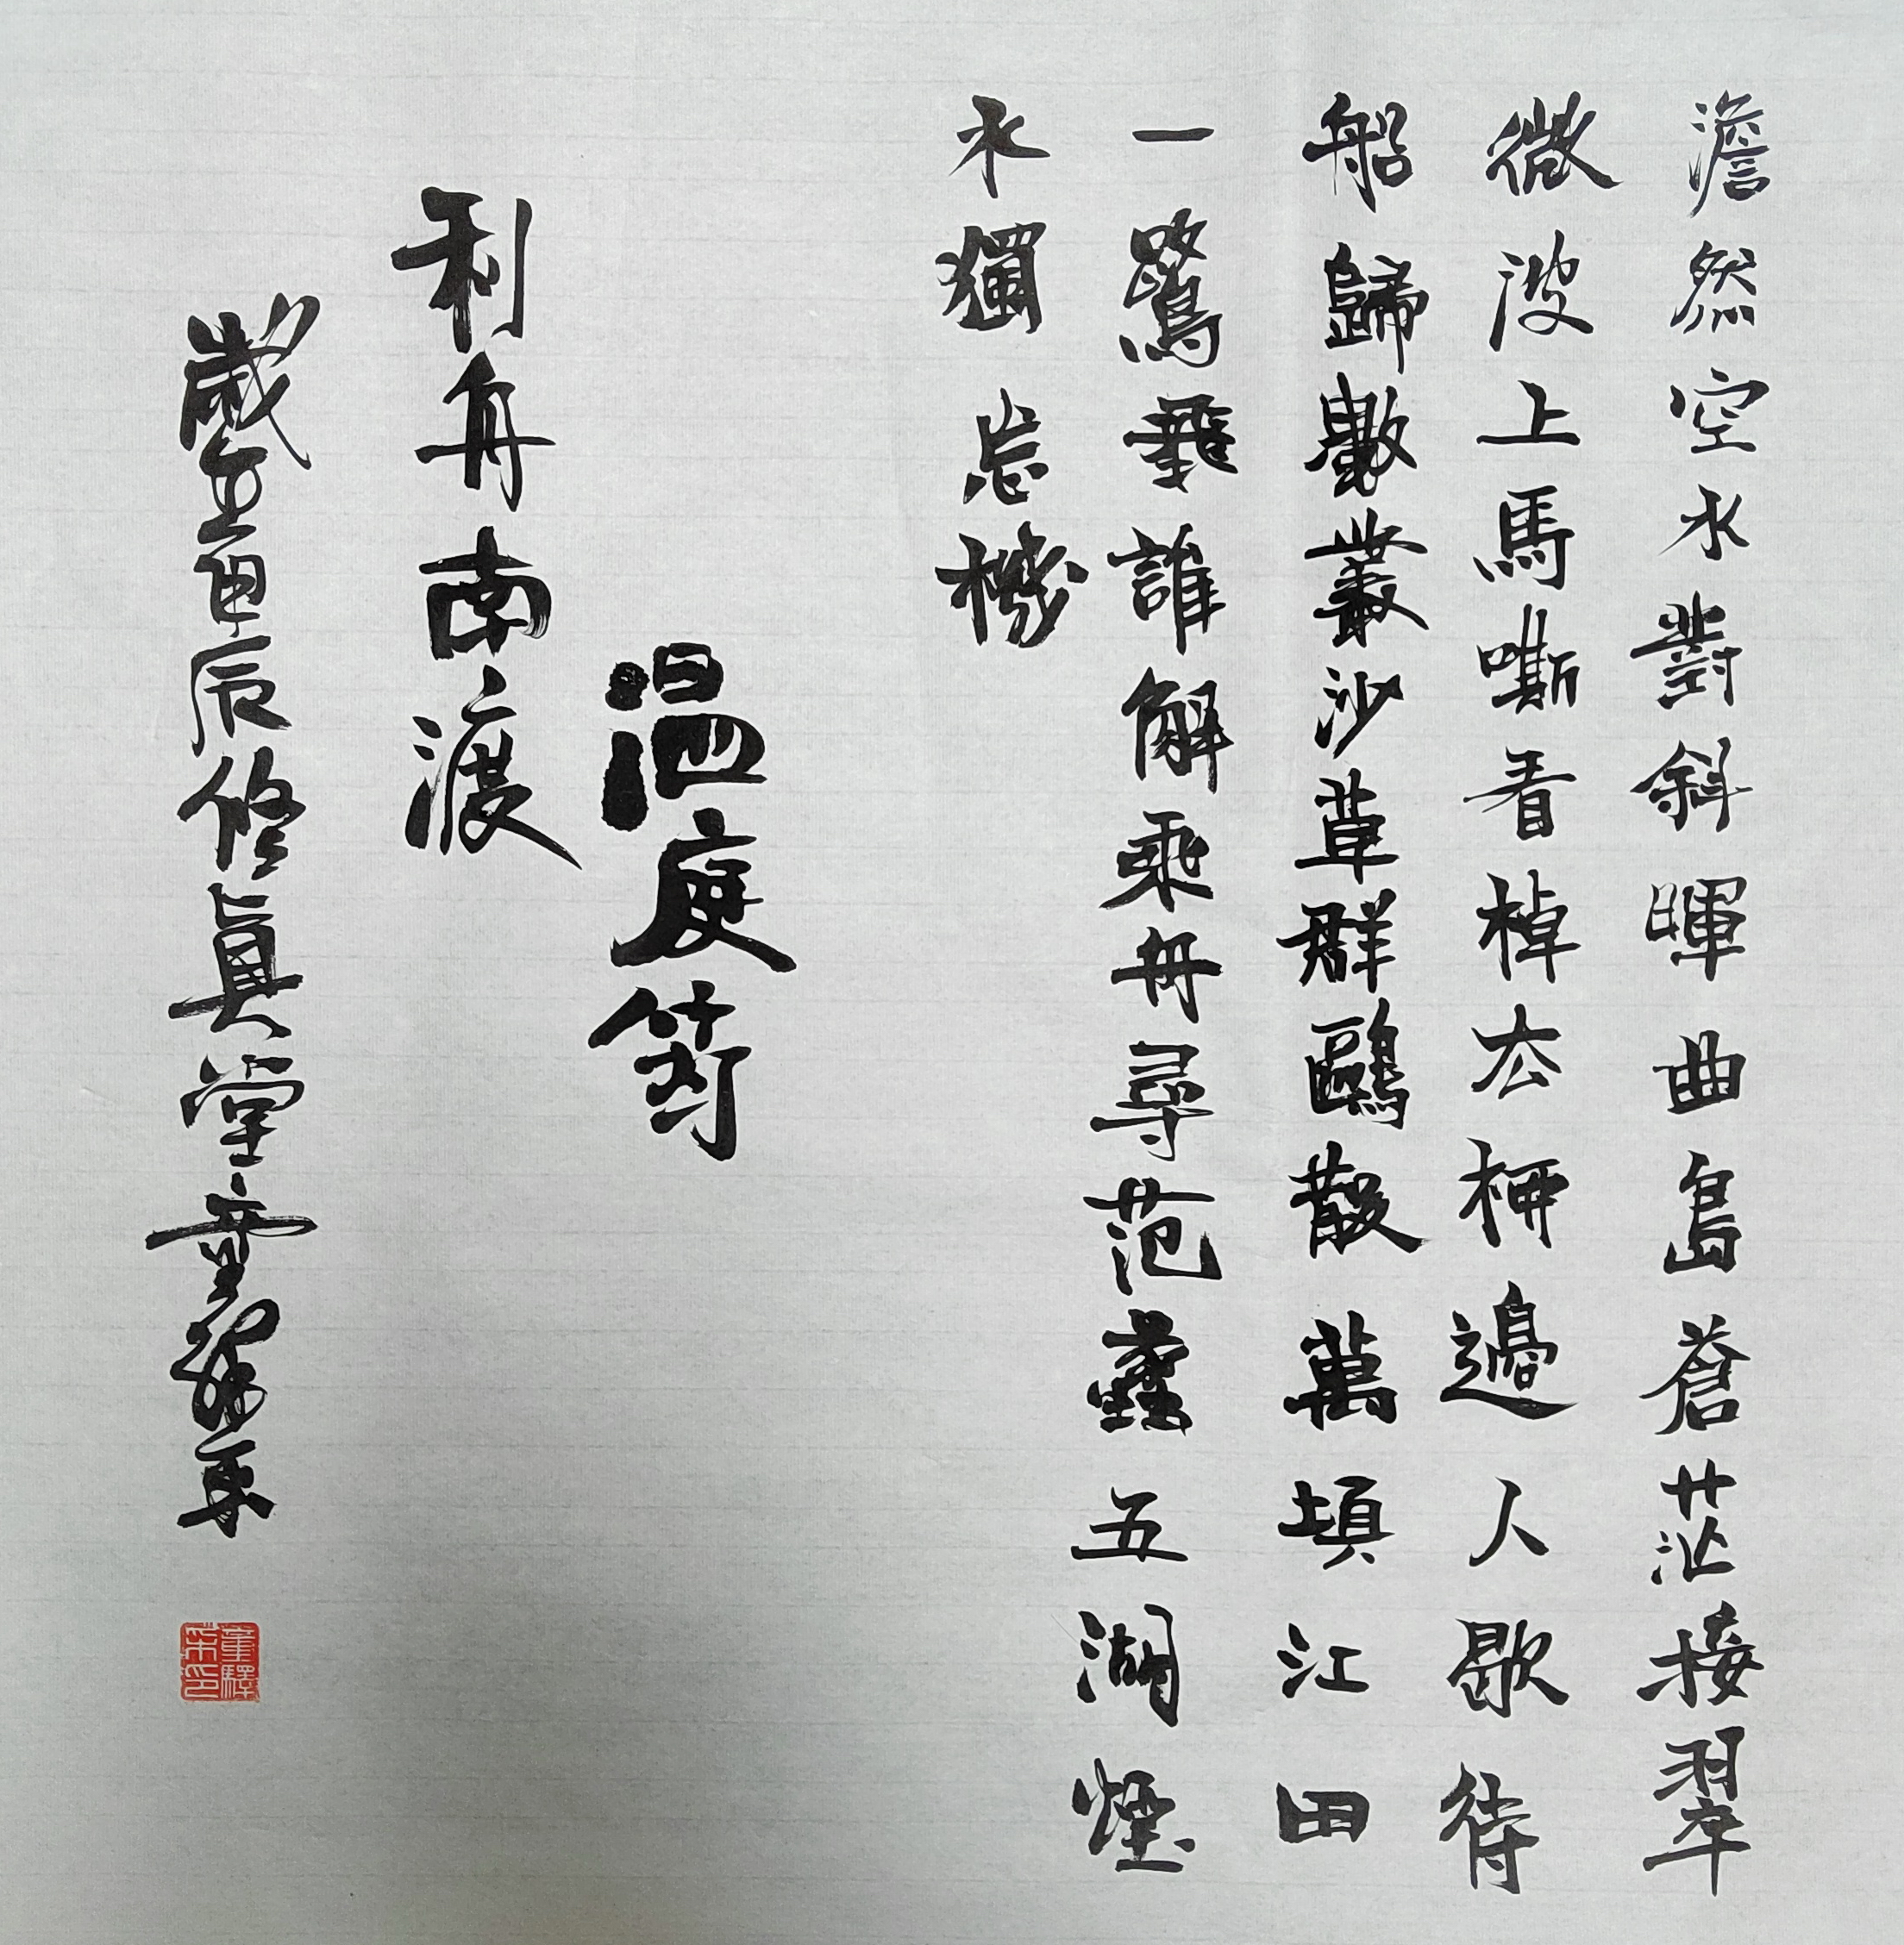 澹然空水對斜暉曲島蒼茫接翠
微波上馬嘶看棹去柳邊人歇待
船歸數叢沙草群鷗散萬頃江田
一鷺飛誰解乘舟尋范蠡五湖煙
水獨忘機
温庭筠
利舟南渡
歲在甲辰修真堂童驛采
童驛采印